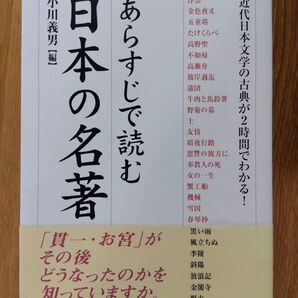 近代日本文学の古典が2時間でわかる!
あらすじで読む
日本の名著
小川義男[編]
金色夜叉
五重塔
たけくらべ
高野聖
不如帰
高瀬舟
彼岸過迄
蒲団
牛肉と馬鈴薯
野菊の墓
土
友情
暗夜行路
恩讐の彼方に
奉教人の死
女の一生
蟹工船
機械
雪国
春琴抄
黒い雨
風立ちぬ
李陵
斜陽
放浪記
金閣寺
野火
「貫一・お宮」が
その後
どうなったのかを
知っていますか。